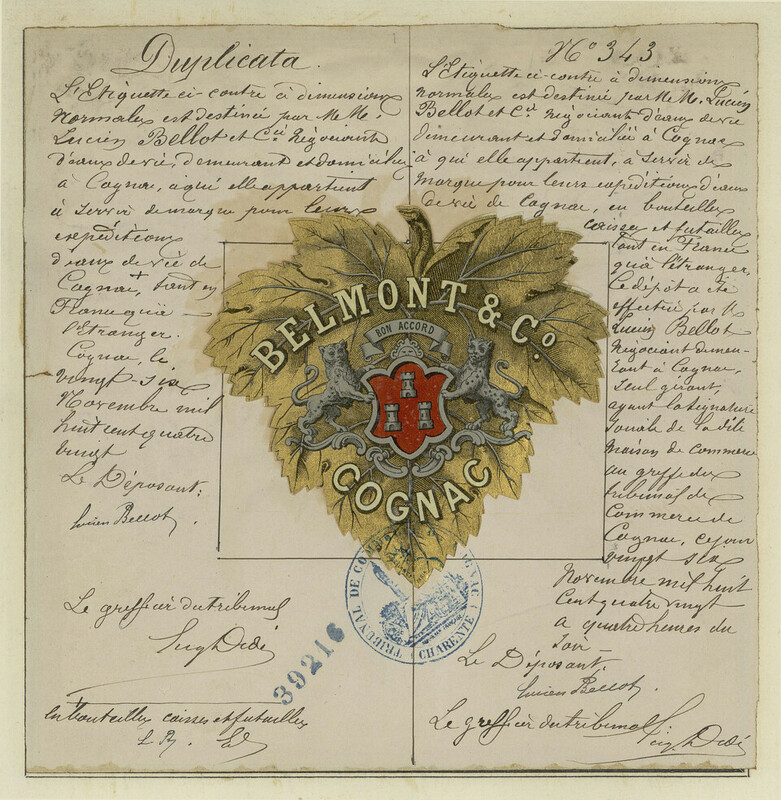 Duplicata.
L'Etiquette ci-contre à dimensions
normales est destinée par MM.
Lucien Bellot et Cie Négociants
d'eaux de vie, demeurant et domiciliés
à Cognac, à qui elle appartient
à servir de marque pour leurs
expéditions
d'eaux de vie de
Cognac, + tant en
France qu'à
l'étranger.
Cognac, le
vingt-six
Novembre mil
huit cent quatre
vingt
Le Déposant:
Lucien Bellot.
Le greffier du tribunal
en bouteilles caisses et futailles
L. B.
No 343
L'Etiquette ci-contre à dimensions
normales est destinée par MM. Lucien
Bellot et Cie Négociants d'eaux de vie
demeurant et domiciliés à Cognac
à qui elle appartient, à servir de
marque pour leurs expéditions d'eaux
de vie de Cognac, en bouteilles
caisses et futailles
tant en France
qu'à l'étranger.
Le dépôt a été
effectué par M.
Lucien Bellot
Négociant demeu-
rant à Cognac,
seul gérant,
ayant la signature
sociale de la dite
maison de commerce
au greffe du
tribunal de
Commerce de
Cognac, ce jour
vingt six
Novembre mil huit
cent quatre vingt
à quatre heures du
soir -
Le Déposant:
Lucien Bellot.
Le greffier du tribunal:
BELMONT & Co.
BON ACCORD
COGNAC
TRIBUNAL DE COMMERCE COGNAC
CHARENTE
39216